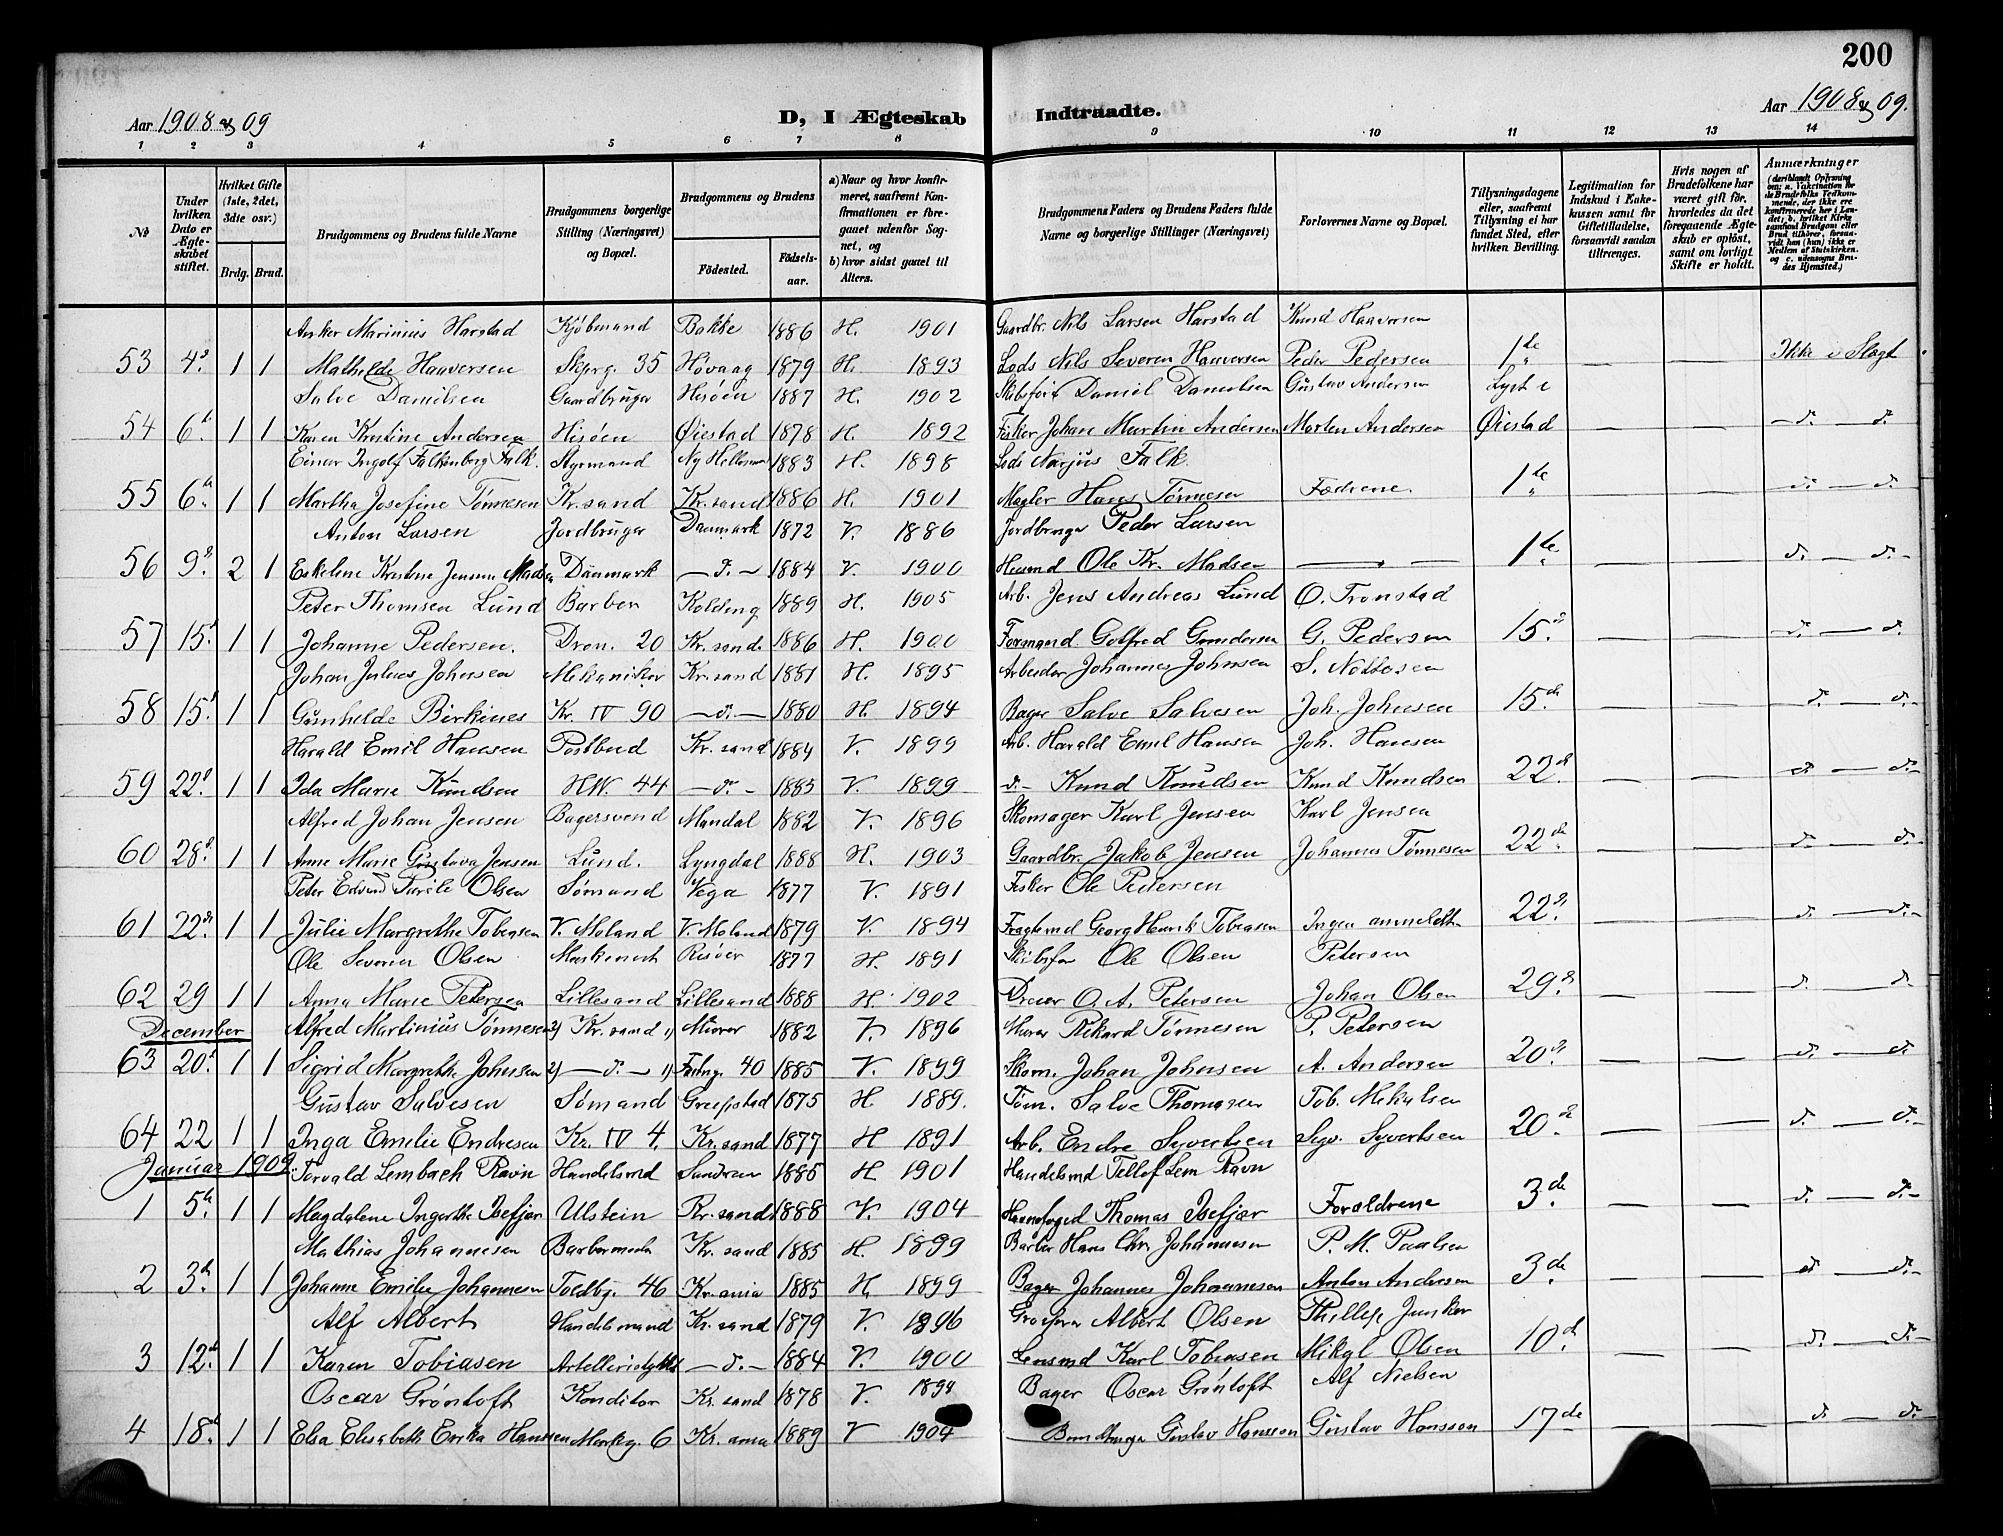 200
Aar 1908 & 09 D, I Ægteskab Indtraadte. Aar 1908 & 09.
1 2 3 4 5 6 7 8 9 10 11 12 13 14
No
Under hvilken Dato er Ægteskabet stiftet.
Hvilket Gifte (1ste, 2det, 3die osv.)
Brdg. Brud.
Brudgommens og Brudens fulde Navne
Brudgommens borgerlige Stilling (Næringsvei) og Bopæl.
Brudgommens og Brudens
Fødested. Fødselsaar.
a) Naar og hvor konfirmeret, saafremt Konfirmationen er foregaaet udenfor Sognet, og
b) hvor sidst gaaet til Alters.
Brudgommens Faders og Brudens Faders fulde Navne og borgerlige Stillinger (Næringsvei)
Forlovernes Navne og Bopæl.
Tillysningsdagene eller, saafremt Tillysning ei har fundet Sted, efter hvilken Bevilling.
Legitimation for Indskud i Enkekassen samt for Giftetilladelse, forsaavidt saadan tiltrænges.
Hvis nogen af Brudefolkene har været gift før, hvorledes da det foregaaende Ægteskab er opløst, samt om lovligt Skifte er holdt.
Anmærkninger (deriblandt Oplysning om: a. Vaccination for de Brudefolks Vedkommende, der ikke ere konfirmerede her i Landet; b. hvilket Kirkesamfund Brudgom eller Brud tilhører, forsaavidt han (hun) ikke er Medlem af Statskirken, og c. udensogns Brudes Hjemsted.)
Anker Marinius Harstad Kjøbmand Bakke 1886 H. 1901 Gaardbr. Nils Larsen Harstad Knud Haaversen
53 4. 1 1 Mathilde Haaversen Skprg. 35 Høvaag 1879 H. 1893 Lods Nils Severin Haaversen Peder Pedersen 1te — — Ikke i Slægt
Salve Danielsen Gaardbruger Hisøen 1887 H. 1902 Skibsfört Daniel Danielsen Gustav Andersen Lyst i
54 6. 1 1 Karen Kristine Andersen Hisøen Øiestad 1878 H. 1892 Fisker Johan Martin Andersen Morten Andersen Øiestad — — d. — d.
Einar Ingolf Falkenberg Falk. Styrmand Ny Hellesund 1883 H. 1898 Lods Marjus Falk.
55 6. 1 1 Martha Josefine Tönnesen Kr.sand Kr.sand 1886 H. 1901 Mægler Hans Tønnesen Fædrene. 1te — — d. — d.
Anton Larsen Jordbruger Danmark 1872 V. 1886 Jordbruger Peder Larsen
56 9. 2 1 Eskeline Kristine Jensine Madsen Danmark — d. — 1884 V. 1900 Husmd Ole Kr. Madsen — — 1te — — d. — d. —
Peter Thomsen Lund Barber Kolding 1889 H. 1905 Arb. Jens Andreas Lund O. Tronstad
57 15. 1 1 Johanne Pedersen. Dron. 20 Kr.sand. 1886 H. 1900 Formand Gotfred Gundersen G. Pedersen 15. — — d. — d.
Johan Julius Johnsen Mekaniker Kr.sand 1881 H. 1895 Arbeider Johannes Johnsen
58 15. 1 1 Gunhilde Birkines Kr. IV 90 — d. — 1880 H. 1894 Bager Salve Salvesen Joh. Johnsen 15de — — d. — d.
Harald Emil Hansen Postbud Kr.sand 1884 V. 1899 Arb. Harald Emil Hansen Joh. Hansen
59 22. 1 1 Ida Marie Knudsen H.W. 44 — d. — 1885 V. 1899 d. — Knud Knudsen Knud Knudsen 22d. — — d. — d. —
Alfred Johan Jensen Bagersvend Mandal 1882 V. 1896 Skomager Karl Jensen Karl Jensen
60 28. 1 1 Anne Marie Gustava Jensen Lund. Lyngdal 1888 H. 1903 Gaardbr. Jakob Jensen Johannes Tønnesen 22de — — d. — d.
Peter Edvind Olsen Sømand Vega 1877 V. 1891 Fisker Ole Pedersen
61 22. 1 1 Julie Margrethe Tobiasen V. Moland V. Moland 1879 V. 1894 Fragtemd Georg Henrik Tobiasen Ingen anmeldt 22. — — d. — d. —
Ole Severin Olsen Maskinist Risøer 1877 H. 1891 Skibsför Ole Olsen Petersen
62 29 1 1 Anna Marie Petersen Lillesand Lillesand 1888 H. 1902 Dreier O. A. Petersen Johan Olsen 29d. — — d. — d.
December Alfred Martinius Tønnesen 2) Kr.sand 1) Murer 1882 V. 1896 Murer Rikard Tønnesen P. Petersen
63 20. 1 1 Sigrid Margrethe Johnsen 2) — d. — 1) Fæstng. 40 1885 V. 1899 Skom. Johan Johnsen A. Andersen 20d. — — d. — d.
Gustav Salvesen Sømand Greipstad 1875 H. 1889. Tøm. Salve Thomasen Tob. Mikalsen
64 22 1 1 Inga Emilie Endresen Kr. IV 4. Kr.sand 1877 H 1891 Arb. Endre Syvertsen Syv. Syvertsen 20d. — — d. — d. —
Januar 1909. Torvald Lembach Ravn Handelsmd 1885 H 1901 Handelsmd Tellef Lem Ravn
1 5. 1 1 Magdalene Ingerthe Isefjær Ulstein Kr.sand 1888 V. 1904 Havnefoged Thomas Isefjær Forældrene 3de. — — d. — d. —
Mathias Johannesen Barbermester Kr.sand 1885 H. 1899 Barber Hans Chr. Johannesen P. M. Paulsen
2 3. 1 1 Johanne Emilie Johannesen Toldbg. 46 Kr.ania 1885 H. 1899 Bager Johannes Johannesen Anton Andersen 3de. — — d. — d. —
Alf Albert Handelsmand Kr.sand 1879 V. 1896 Albert Olsen Phillip Junker
3 12. 1 1 Karen Tobiasen — d. — 1884 V. 1900 Lensmd Karl Tobiasen Mikyl Olsen 10d. — — d. — d. —
Oscar Gröntoft Konditor Kr.sand 1878 V. 1894 Bager Oscar Gröntoft Alf Nielsen
4 18. 1 1 Elsa Elisabeth Erika Hansen Markg. 6 Kr.ania 1889 V 1904 Gustav Hansson Gustav Hansson 17de — — d. — d. —